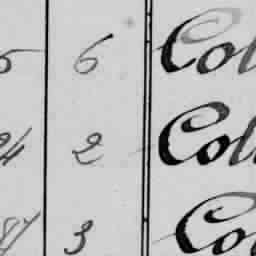 5 6 Col
24 2 Col
87 3 Co